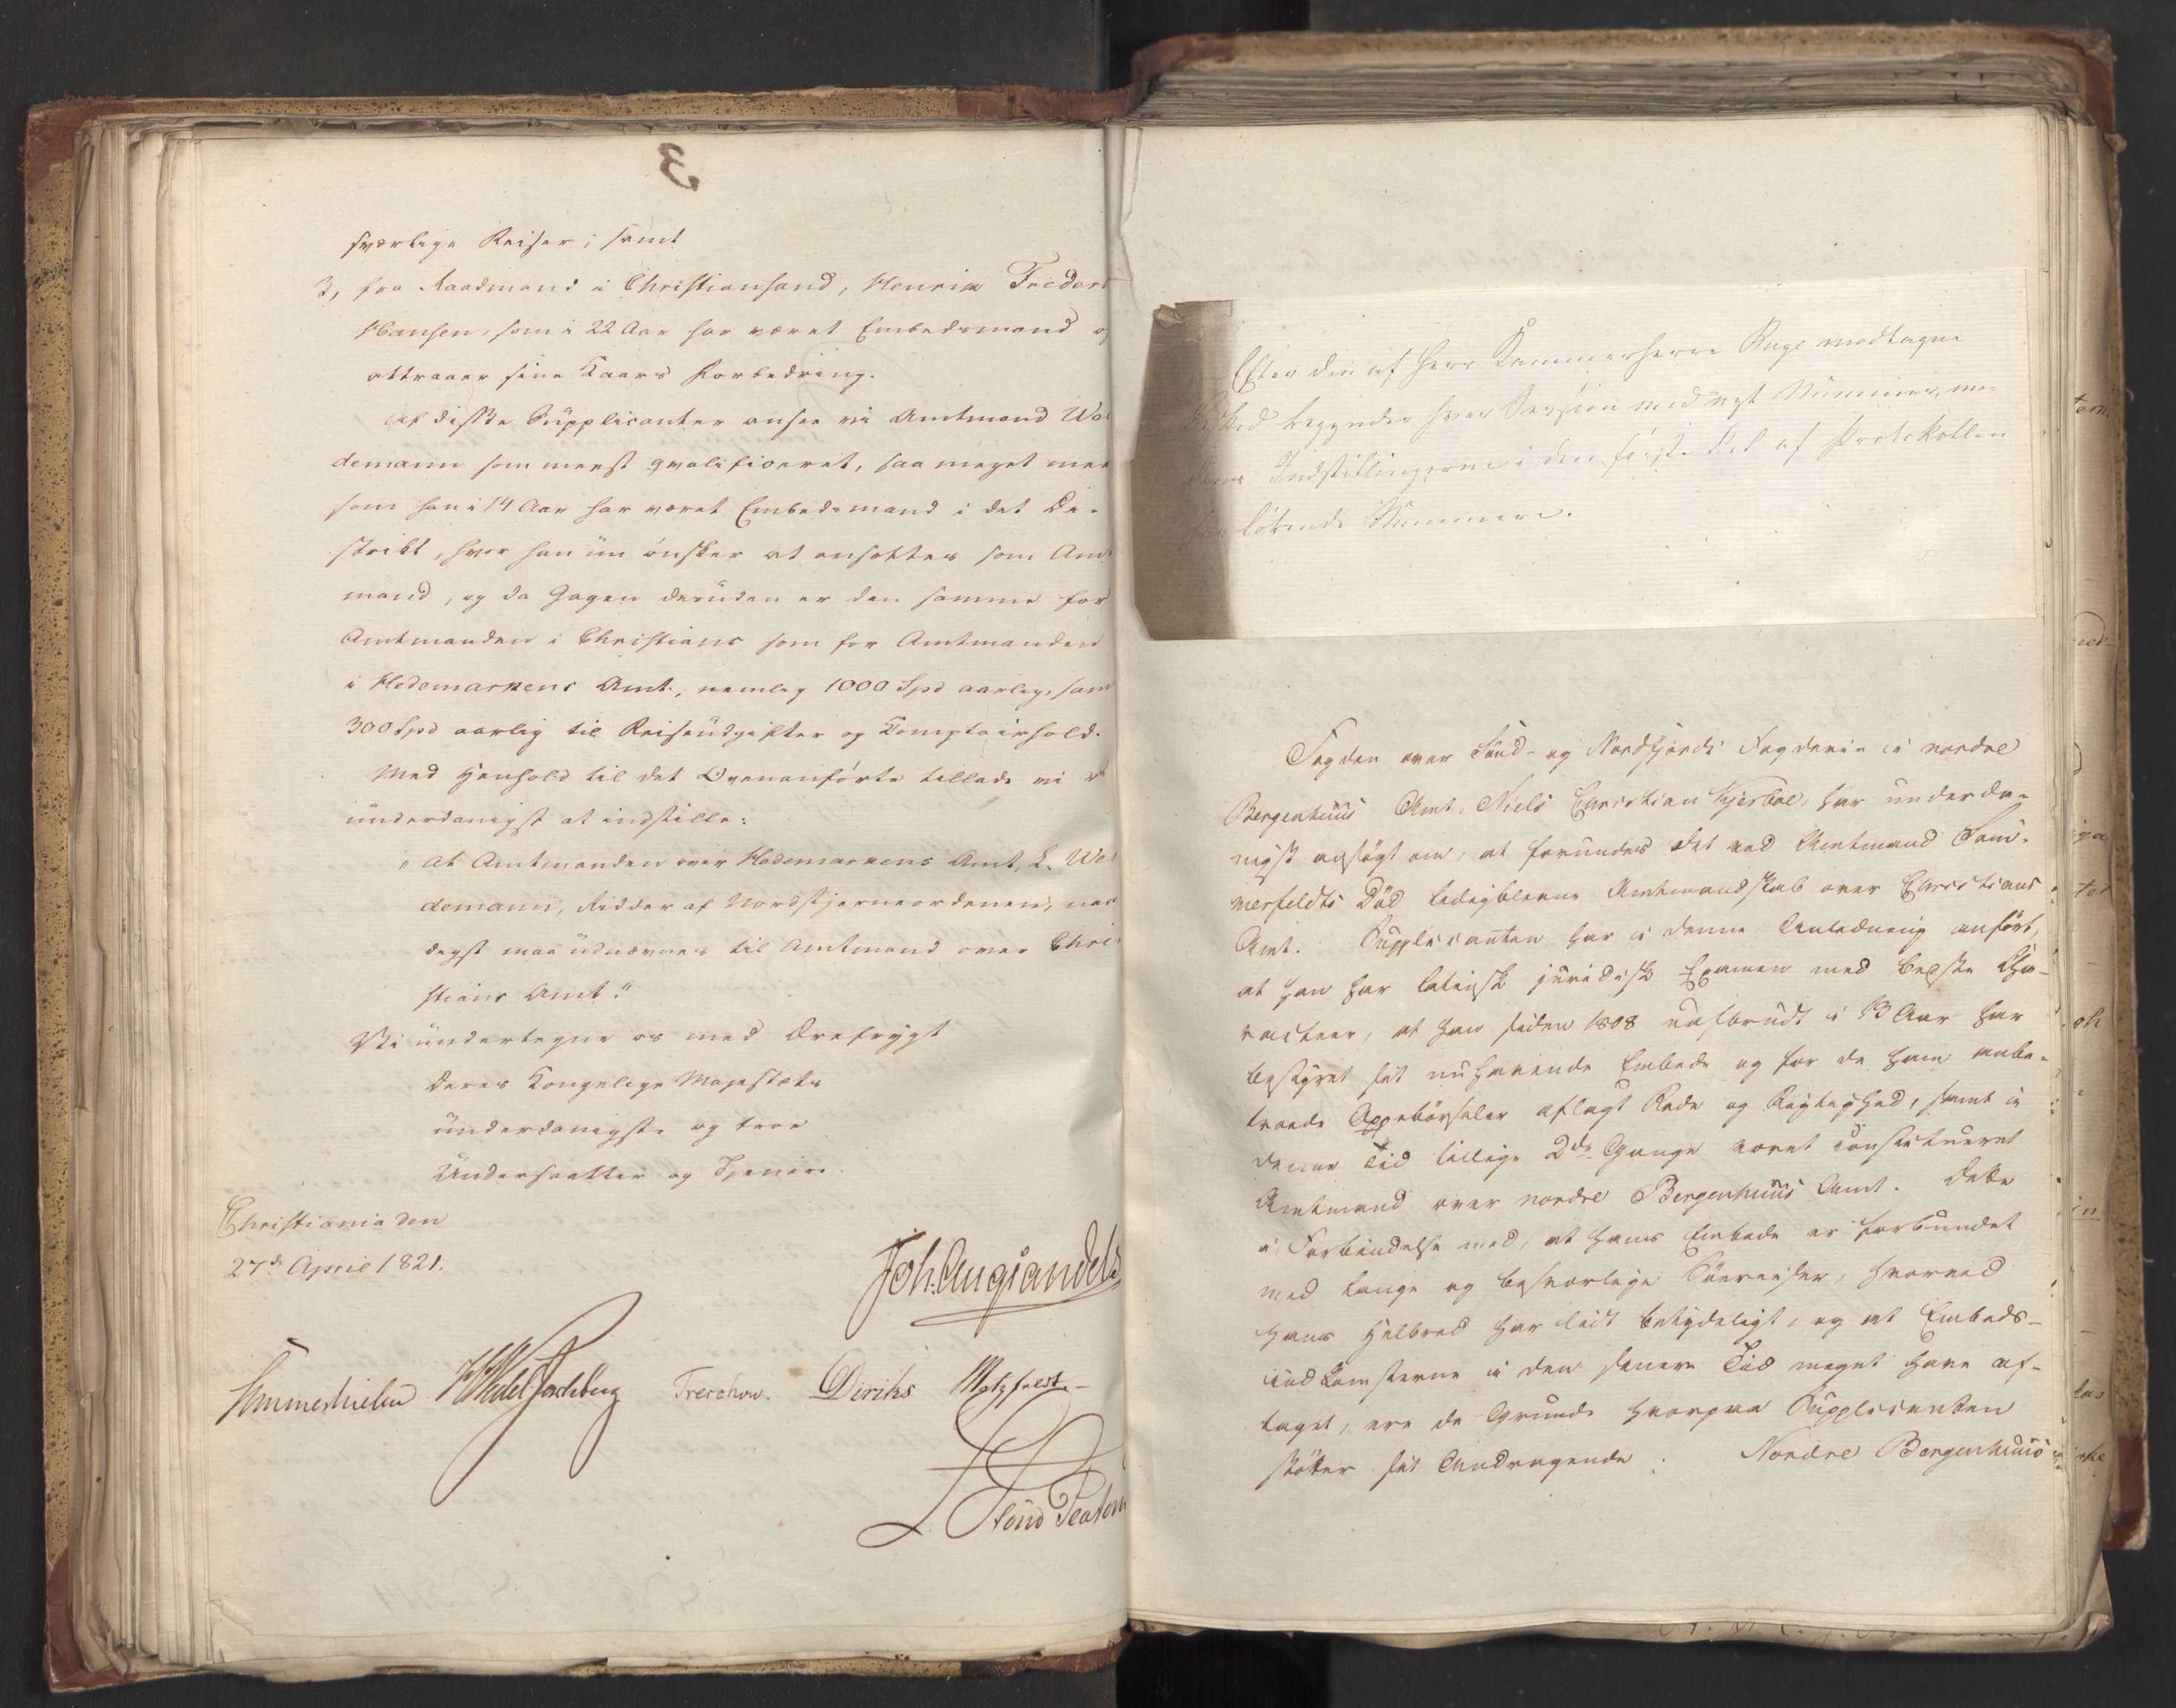 3
sværlige Reiser; samt
3, fra Raadmand i Christiansand, Henrik Frider
Hansen, som i 22 Aar har været Embedsmand o
attraaer sine Kaars Forbedring.
Af disse Supplicanter ansee vi Amtmand We
demann som meest qvalificeret, saa meget mee
som han i 14 Aar har været Embedsmand i det Di-
strikt, hvor han nu ønsker at ansættes som Amt
mand, og da Gagen desuden er den samme for
Amtmanden i Christians som for Amtmanden
i Hedemarkens Amt, nemlig 1000 Spd aarlig, samt
300 Spd aarlig til Reiseudgifter og Komptoirhold.
Med Henhold til det Ovenanførte tillade vi
underdanigst at indstille:
"At Amtmanden over Hedemarkens Amt, L. We
demann, Ridder af Nordstjerneordenen, naa
digst maa udnævnes til Amtmand over Chri
stians Amt."
Vi undertegne os med Ærefrygt
Deres Kongelige Majestæts
underdanigste og troe
Undersaatter og Tjenere.
Christiania den
27d April 1821.
Joh. Aug. Sandels
Sommerhielm HWedel Jarlsberg Treschow. Diriks Motzfeldt
Efter den af Herr Kammerherre Ruge modtagne
Besked begynder hver Session med nyt Nummer, me-
dens Indstillingerne i den første Del af Protokollen
har løbende Nummere.
Fogden over Sønd- og Nordfjords Fogderie i nordre
Bergenhuus Amt, Niels Christian Kjerboe, har underda-
nigst ansøgt om, at forundes det ved Amtmand Som-
merfeldts Død ledigblevne Amtmandskab over Christians
Amt. Supplicanten har i denne Anledning anført,
at han har latinsk juridisk Examen med bedste Cha-
racteer, at han siden 1808 uafbrudt i 13 Aar har
bestyret sit nuhavende Embede og for de ham anbe-
troede Oppebørseler aflagt Rede og Rigtighed, samt i
denne Tid tillige 2de Gange været constitueret
Amtmand over nordre Bergenhuus Amt. Dette
i Forbindelse med, at hans Embede er forbundet
med lange og besværlige Søereiser, hvorved
hans Helbred har lidt betydeligt, og at Embeds-
indkomsterne i den senere Tid meget have af-
taget, ere de Grunde hvorpaa Supplicanten
støtter sit Andragende. Nordre Bergenhuus